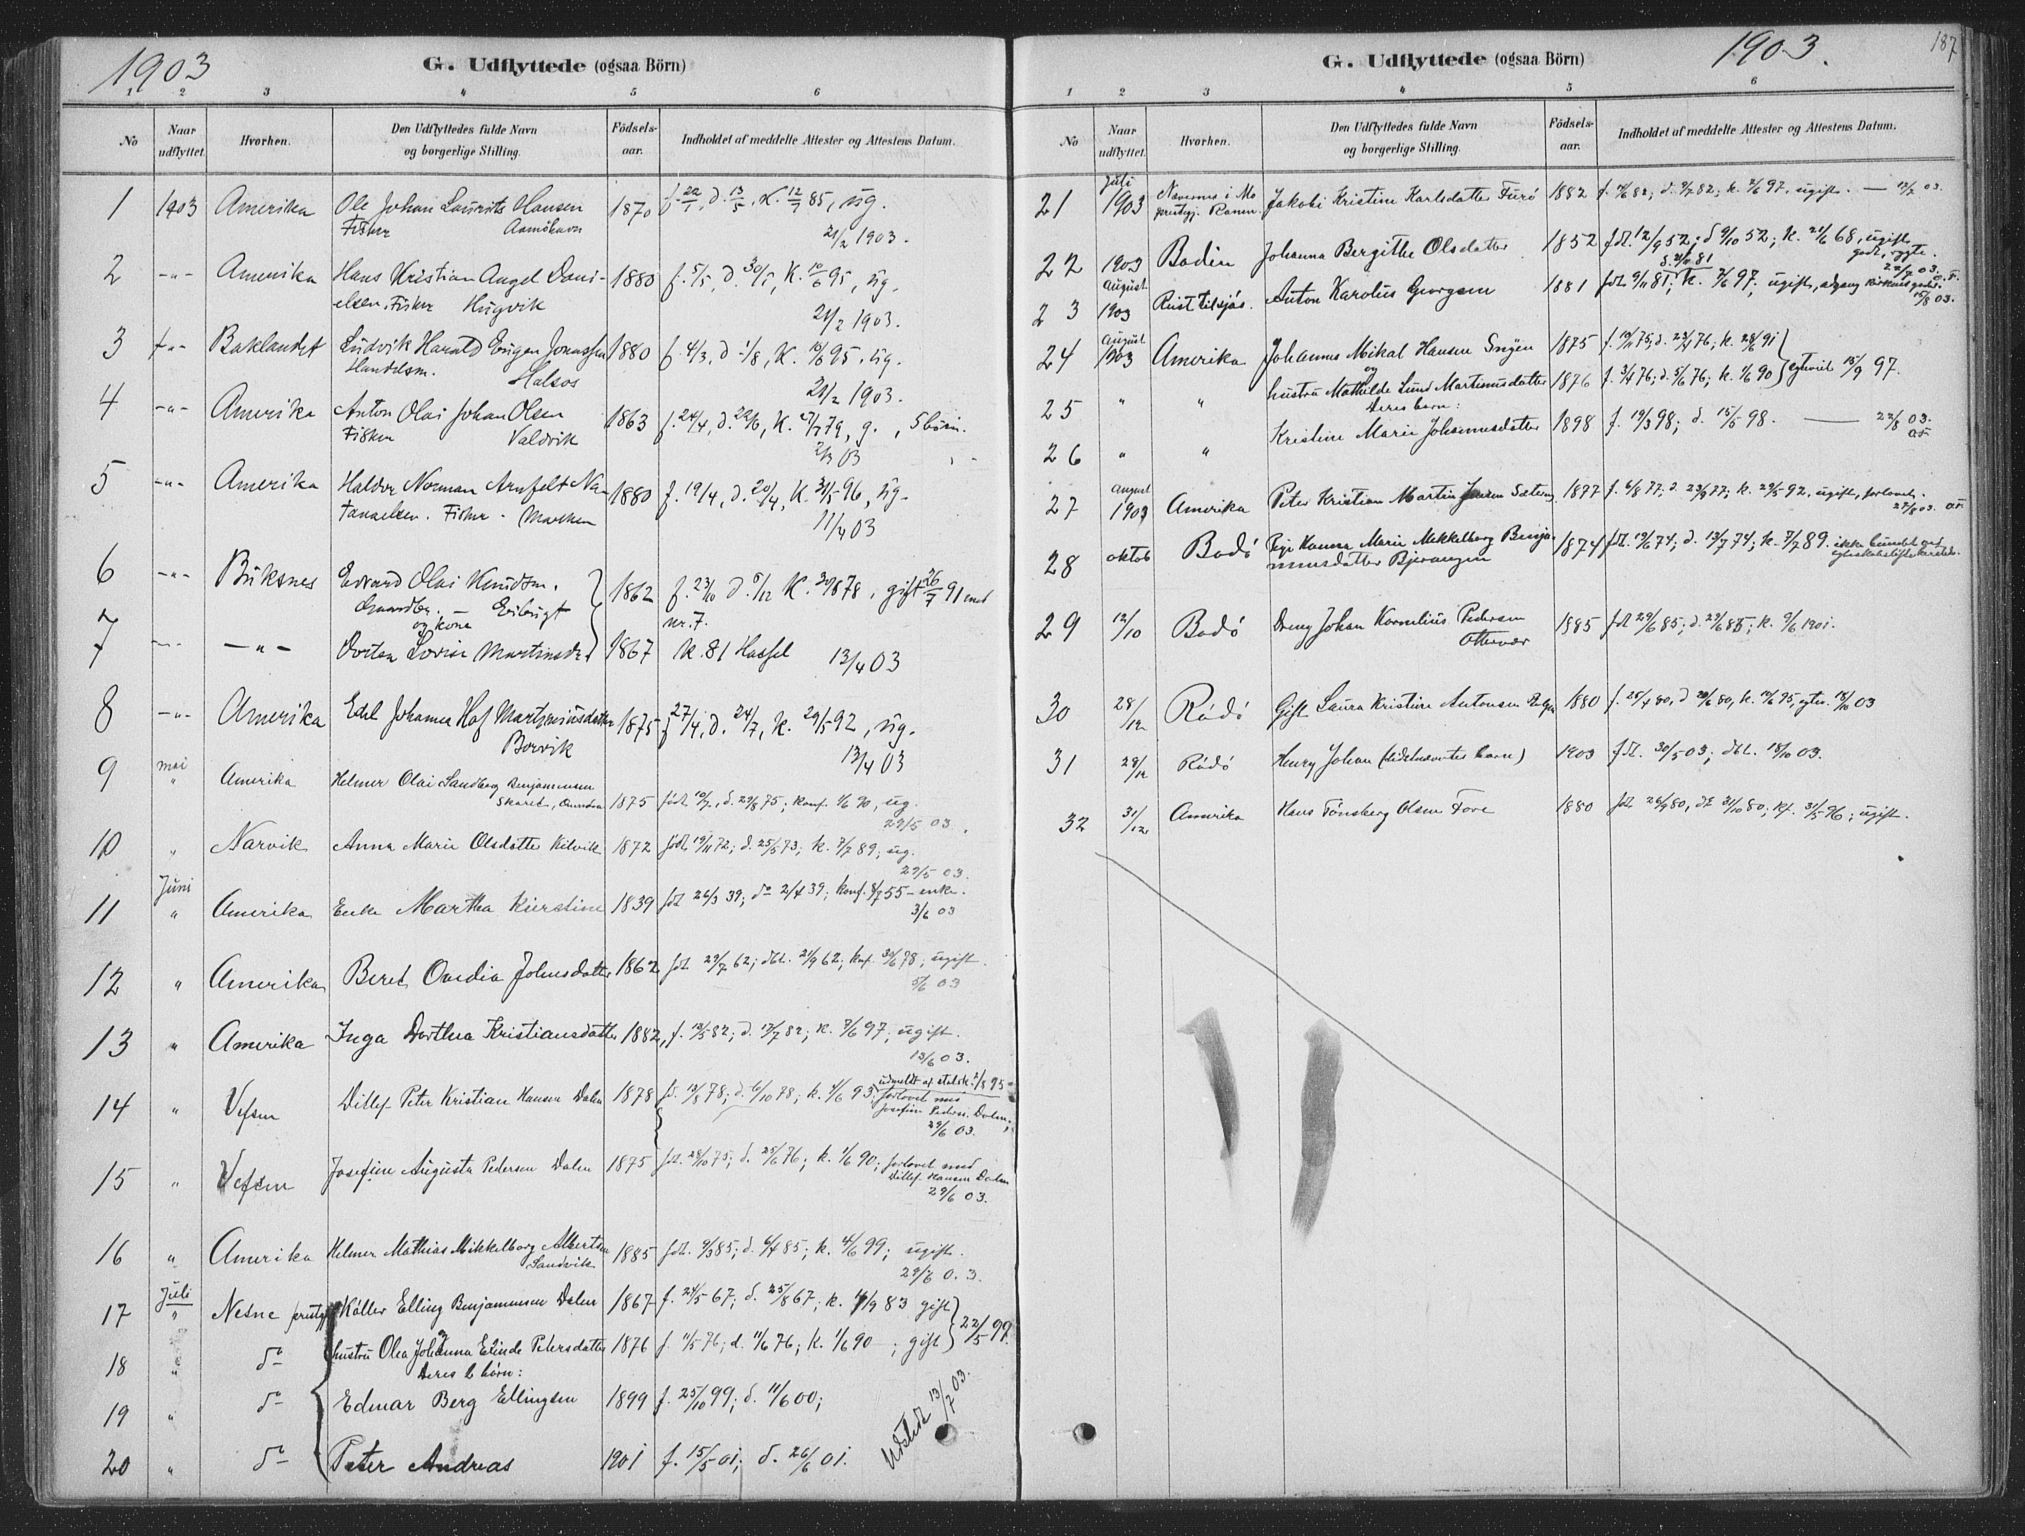 1903
G. Udflyttede (ogsaa Börn)
1 2 3 4 5 6
No
Naar udflyttet
Hvorhen.
Den Udflyttedes fulde Navn og borgerlige Stilling.
Födsels-aar.
Indholdet af meddelte Attester og Attestens Datum.
1 1903 Amerika Ole Johan Laurits Hansen 1870 f. 22/1, d. 13/5, K. 12/7 85, ug.
Fisker Aasmohavn 21/2 1903.
2 -"- Amerika Hans Kristian Angel Dani- 1880 f. 5/5, d. 30/5, K. 10/6 95, ug.
elsen. Fisker Hugvik 21/2 1903.
3 -"- Baklandet Ludvik Harald Eugen Jonassen 1880 f. 4/3, d. 1/8, K. 16/6 95. ug.
Handelsm. Halsos 21/2 1903.
4 -"- Amerika Anton Olai Johan Olsen 1863 f. 24/4, d. 22/6, K. 27/7 79, g., 5 börn.
Fisker Valdvik 2/3 03
5 -"- Amerika Haldor Norman Arnfelt Na- 1880 f. 19/4, d. 20/4, K. 31/5 96, ug.
tanaelsen. Fisker. 11/4 03
6 -"- Buksnes Edvard Olai Knudsen. 1862 f. 23/10 d. 5/12 K. 30/8 78, gift 26/7 91 med
Gaardbr. — nr. 7.
og kone
7 -"- -"- Dortea Lovise Martinsd. 1867 k. 81 Hassel 13/4 03
8 -"- Amerika Edel Johanna Hof Martiniusdatter 1875 f. 27/4, d. 24/7, k. 29/5 92, ug.
Borvik 13/4 03
9 mai " Amerika Helmer Olai Sandberg Benjaminsen
1875 födt 10/7, d. 29/8 75; konf. 1/6 90, ug.
29/5 03.
10 " Narvik Anna Marie Olsdatter Kilvik 1872 födt 19/11 72; d. 25/5 73; k. 7/7 89; ug.
29/5 03.
Juni
11 " Amerika Enke Martha Kierstine 1839 fdt 26/3 39; do 2/4 39; konf. 8/7 55 – enke.
3/6 03
12 " Amerika Beret Ovedia Johnsdatter 1862 fdt 29/7 62; dbt. 21/9 62; knf. 30/6 78; ugift.
5/6 03
13 " Amerika Inga Dorthea Kristiansdatter 1882, f. 13/5 82; d. 17/7 82; k. 7/6 97; ugift.
13/6 03.
14 " Vefsen Ditlef Peter Kristian Hansen Dalen 1878 fd. 13/8 78; d. 6/10 78; k. 4/6 93; udmeldt af statsk. 2/8 95 –
forlovet med
Josefine Peders. Dalen;
29/6 03.
15 " Vefsen Josefine Augusta Pedersen Dalen 1875 fdt. 28/10 75; d. 25/6 76; k. 1/6 90; forlovet med
Ditlef Hansen Dalen
29/6 03.
16 " Amerika Helmer Mathias Mikkelborg Albertsen 1885 fdt. 9/3 85; d. 6/4 85; k. 4/6 99; ugift.
Sandvik 29/6 0.3.
Juli
17 " Nesne prstgj. Køller Elling Benjaminsen Dalen 1867 f. 24/5 67; d. 25/8 67; k. 4/9 83 gift
22/5 99.
18 " do hustru Olea Johanna Elinde Petersdatter 1876 f. 11/5 76; d. 11/6 76; k. 1/6 90 –; gift
Deres 2 börn:
19 " do Edmar Berg Ellingsen 1899 f. 25/10 99; d. 11/6 00;
20 " do Peter Andreas 1901 f. 15/5 01; d. 26/6 01.
Udstedt 13/7 03.
1903.
187
G. Udflyttede (ogsaa Börn)
1 2 3 4 5 6
No
Naar udflyttet.
Hvorhen.
Den Udflyttedes fulde Navn og borgerlige Stilling.
Födsels-aar.
Indholdet af meddelte Attester og Attestens Datum.
21 Juli 1903 Jakobi Kristine Karlsdatter Furö 1882 f. 11/6 82; d. 9/7 82; k. 7/6 97, ugift. — 13/7 03.
22 1903 Bodin Johanna Bergithe Olsdatter 1852 fdt. 12/9 52; d 9/10 52; k. 21/6 68, ugift,
godt rygte.
23 August 1903 Anton Karolius Georgsen 1881 fdt. 9/11 81; k. 7/6 97; ugift,
15/8 03.
24 August 1903 Amerika Johannes Mikal Hansen Snyen 1875 f. 10/11 75; d. 23/4 76; k. 28/6 91
og egteviet 15/9 97.
25 " " hustru Mathilde Lund Martinusdatter 1876 f. 3/4 76; d. 5/6 76; k. 1/6 90
Deres barn:
26 " " Kristine Marie Johannesdatter 1898 f. 19/3 98; d. 15/5 98. — 22/8 03.
27 August 1903 Amerika Peter Kristian Martin Jensen 1877 f. 6/8 77; d. 23/9 77; k. 29/5 92, ugift, forlovet.
27/8 03.
28 oktob Bodö Pige Hanna Marie Mekkelborg Benja- 1874 fdt. 19/6 74; d. 13/7 74; k. 7/7 89.
minsdatter Bjerangen
29 12/10 Bodö Dreng Johan Kornelius Pedersen 1885 fdt 29/6 85; d. 29/6 85; k. 9/6 1901.
Ottervær
30 28/12 Rödö Gift Laura Kristine Antonsen 1880 f. 25/4 80, d 20/6 80, k. 16/6 95, egtev. 18/10 03
31 28/12 Rödö Henry Johan (sidstnævntes barn) 1903 fdt. 30/5 03; dbt. 18/10 03.
32 31/12 Amerika Hans Tönsberg Olsen Fore 1880 fdt 26/9 80, dt 31/10 80; kf. 31/5 96; ugift.